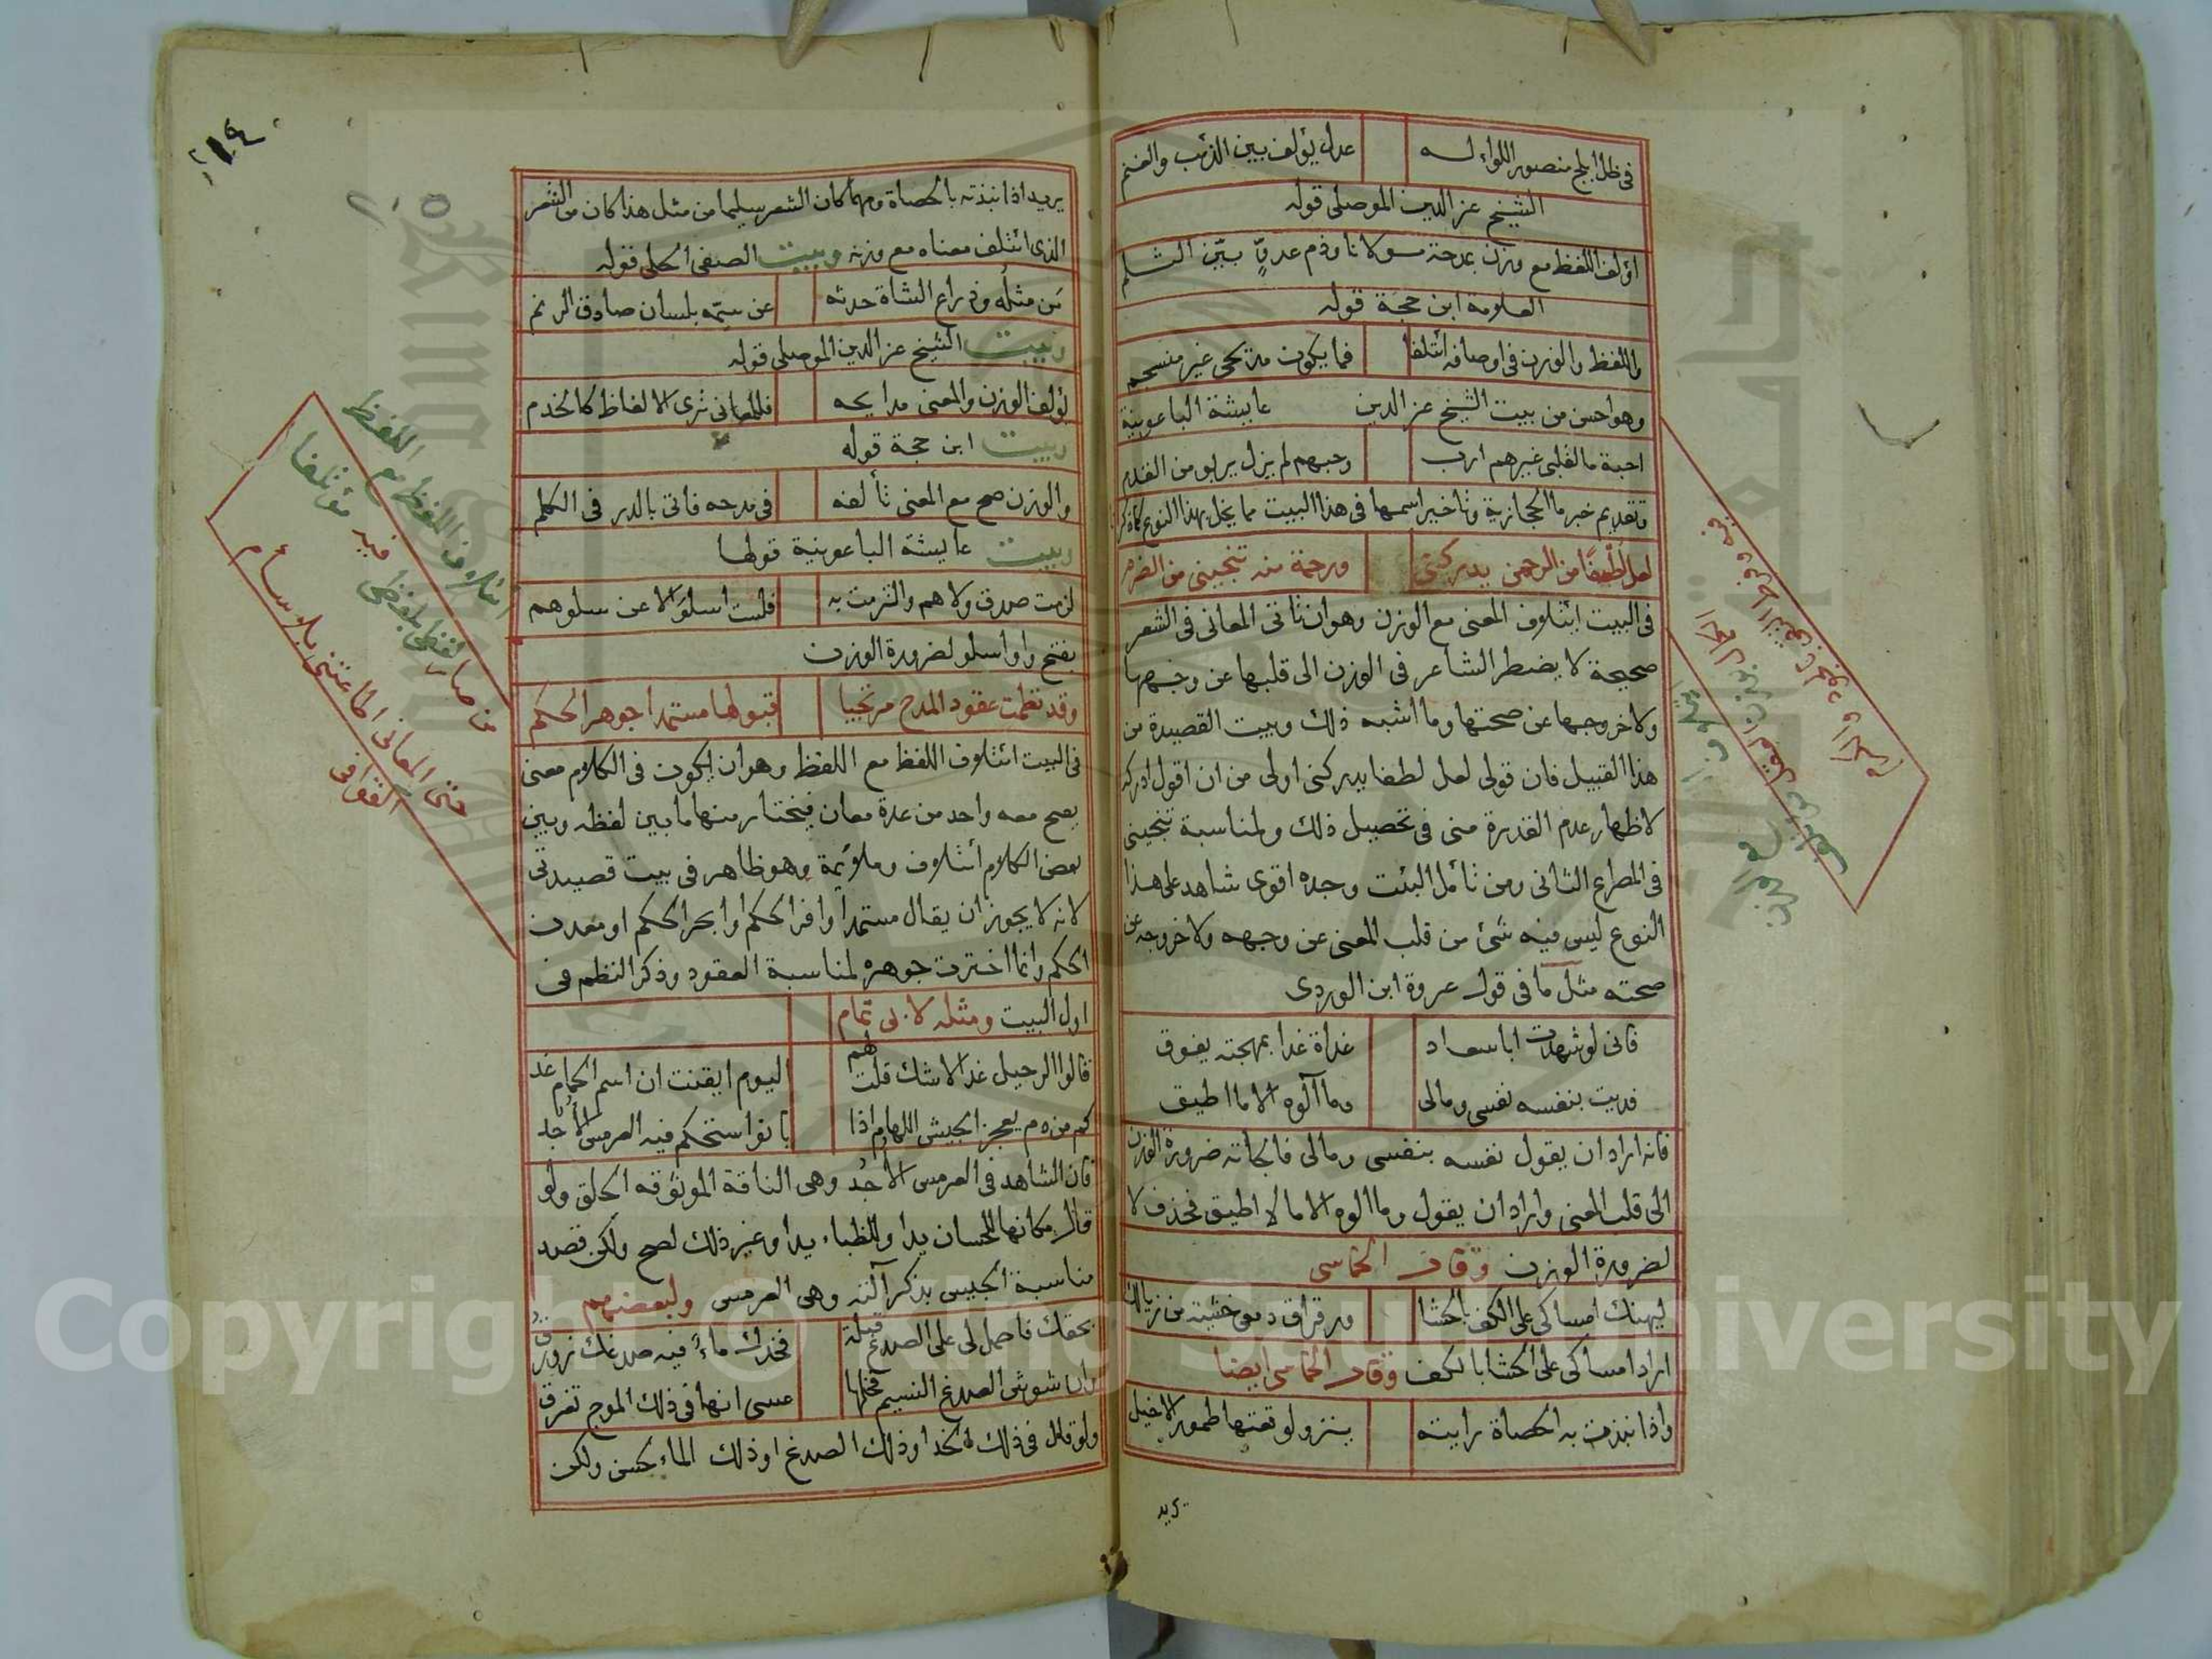 في ظل ابلج منصور اللواء له عدل يؤلف بين الذئب والغنم
الشيخ عز الدين الموصلي قوله
اؤلف اللفظ مع وزن بمدحة مولانا وذم عدوٍّ بيّن الثلم
العلامة ابن حجة قوله
واللفظ والوزن في اوصافه ائتلفا فما يكون مديحي غير منسجم
وهو احسن من بيت الشيخ عز الدين عايشة الباعونية
احبة ما لقلبي غيرهم ارب وحبهم لم يزل يربو من القدم
وتقديم خبر ما الحجازية وتاخير اسمها في هذا البيت مما يخل بهذا النوع
لعل لطفًا من الرحمن يدركني ورحمة منه تنجيني من الضرم
في البيت ايتلاف المعنى مع الوزن وهو ان تاتي المعاني في الشعر
صحيحة لا يضطر الشاعر في الوزن الى قلبها عن وجهها
ولا خروجها عن صحتها وما اشبه ذلك وبيت القصيدة من
هذا القبيل فان قولي لعل لطفا يدركني اولى من ان اقول ادركه
لاظهار عدم القدرة مني في تحصيل ذلك ولمناسبة تنجيني
في المصراع الثاني ومن تأمل البيت وجده اقوى شاهد على هذا
النوع ليس فيه شئ من قلب المعنى عن وجهه ولا خروجه عن
صحته مثل ما في قول عروة ابن الوردي
فاني لو شهدت ابا سعاد غداة غدا بمهجته يفوق
فديت بنفسه نفسي ومالي وما آلوه الا ما اطيق
فانه اراد ان يقول نفسه بنفسي ومالي فالجأته ضرورة الوزن
الى قلب المعنى واراد ان يقول وما الوه الا ما لا اطيق فحذف لا
لضرورة الوزن وقال الحماسي
ليهنك امساكي على الكف بالحشا ورقراق دمعي خشية من زيالك
اراد امساكي على الحشا بالكف وقال الحماسي ايضا
واذا نبذت به الحصاة رايته ينزو لوقعتها طمور الاخيل
يريد
١١٤
يريد اذا نبذته بالحصاة ومهما كان الشعر سليما من مثل هذا كان من الشعر
الذي ائتلف معناه مع وزنه وبيت الصفي الحلي قوله
من مثله وذراع الشاة حدثه عن سمّه بلسان صادق الرنم
وبيت الشيخ عز الدين الموصلي قوله
يؤلف الوزن والمعنى مدايحه فللمعاني ترى الالفاظ كالخدم
وبيت ابن حجة قوله
والوزن صح مع المعنى تألفه في مدحه فاتى بالدر في الكلم
وبيت عايشة الباعونية قولها
لزمت صدق ولاهم والتزمت به فلست اسلوَ الا عن سلوهم
بفتح واو اسلو لضرورة الوزن
وقد نظمت عقود المدح مرتجيا قبولها مستمدا جوهر الحكم
في البيت ائتلاف اللفظ مع اللفظ وهو ان يكون في الكلام معنى
يصح معه واحد من عدة معان فيختار منها ما بين لفظه وبين
بعض الكلام أئتلاف وملائمة وهو ظاهر في بيت قصيدتي
لانه لا يجوز ان يقال مستمدا وافر الحكم وابحر الحكم او معدن
الحكم وانما اخترت جوهر لمناسبة العقود وذكر النظم في
اول البيت ومثله لابي تمام
قالوا الرحيل غدا لا شك قلت لهم اليوم ايقنت ان اسم الحمام غد
كم من دم يعجز الجيش اللهام اذا بانوا ستحكم فيه العرمس الأُجُد
فان الشاهد في العرمس الأُجُد وهي الناقة الموثوقه الخلق ولو
قال مكانها للحسان يدا وللظباء يدا وغير ذلك لصح ولكن قصد
مناسبة الجيش بذكر آلته وهي العرمس ولبعضهم
بحقك فاحمل لي على الصدغ قبلة فخدك ماءٌ فيه صدغك زورق
وان شوش الصدغ النسيم فخلها عسى انها في ذلك الموج تغرق
ولو قال في ذلك الخد او ذلك الصدغ او ذلك الماء لحسن ولكن
ائتلاف اللفظ مع اللفظ
حتى المعاني
القوافي
Copyright © King Saud University